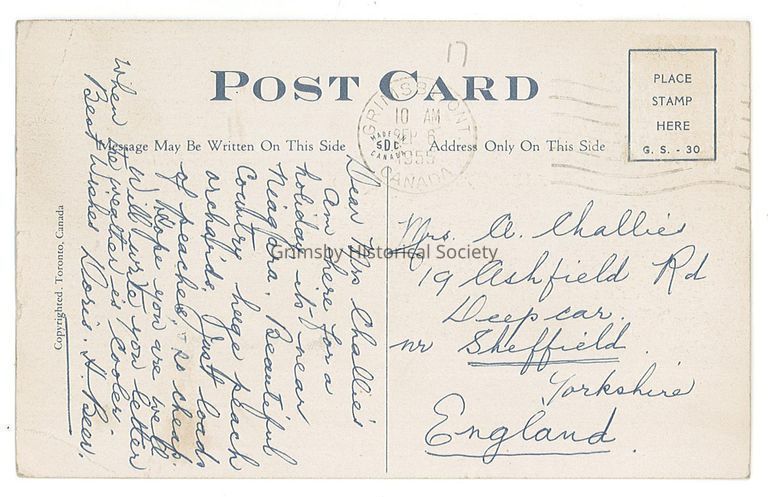 POST CARD
Message May Be Written On This Side
Address Only On This Side
PLACE
STAMP
HERE
G. S. - 30
GRIMSBY ONT
10 AM
SEP 6
1955
CANADA
MADE IN
SDC
CANADA
Copyrighted, Toronto, Canada
Dear Mrs Challies
Am here for a
holiday its near
Niagara. Beautiful
Country hege peach
orchards. Just loads
of peaches, so cheap.
Hope you are well
Will write you letter
When the weather is cooler
Best Wishes Doris. H. Beer.
Mrs. A. Challies
19 Ashfield Rd
Deepcar.
nr Sheffield.
Yorkshire
England.
Grimsby Historical Society